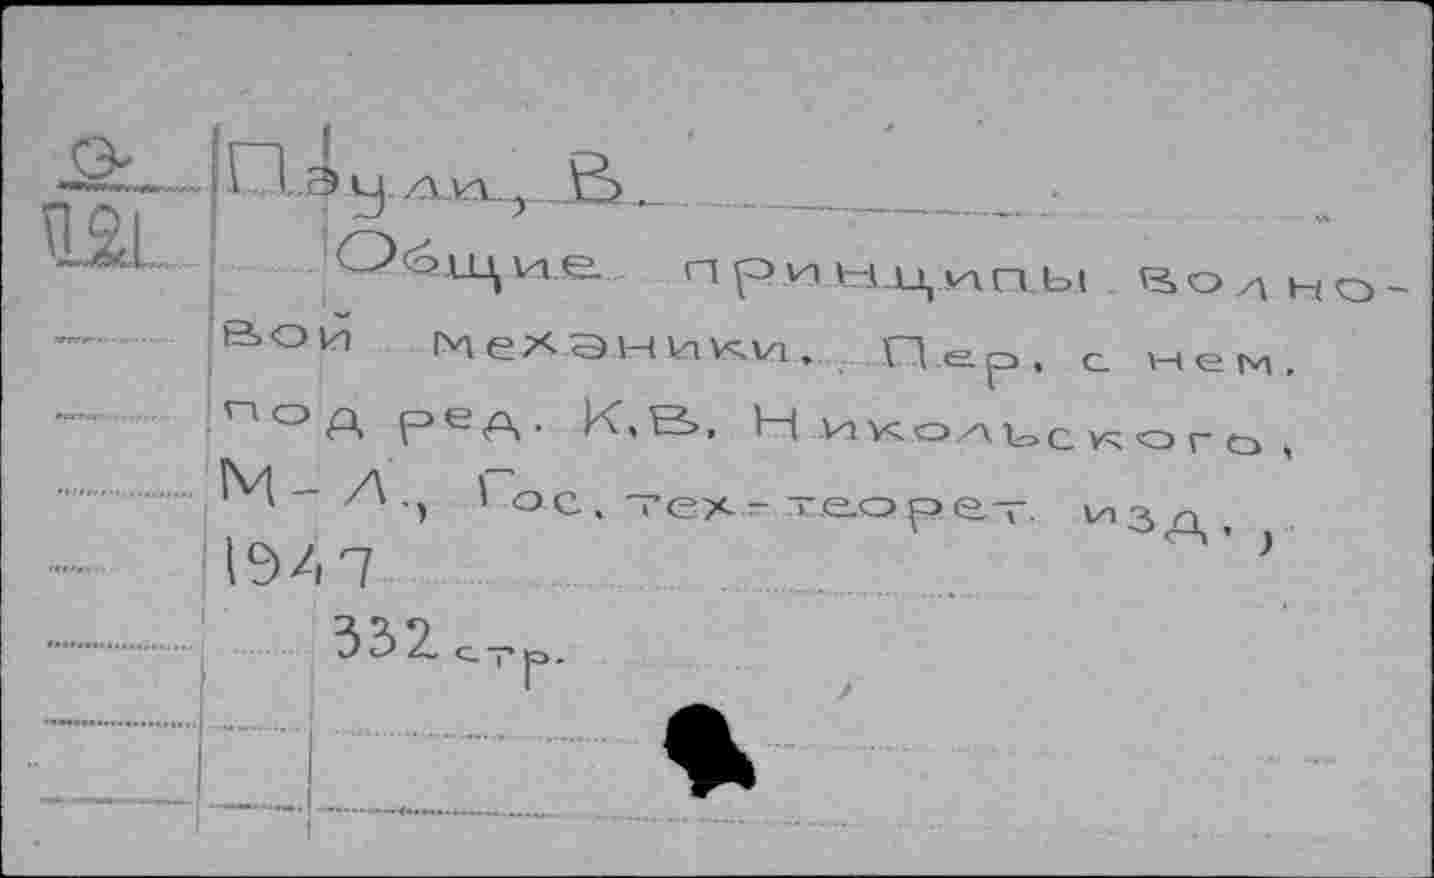 Паули, В.
П21
Общие принципы волно-
вой механики. Пер. с нем.
под ред. К.В. Никольского,
М-Л., Гос. тех-теорет. изд.,
1947
332 стр.